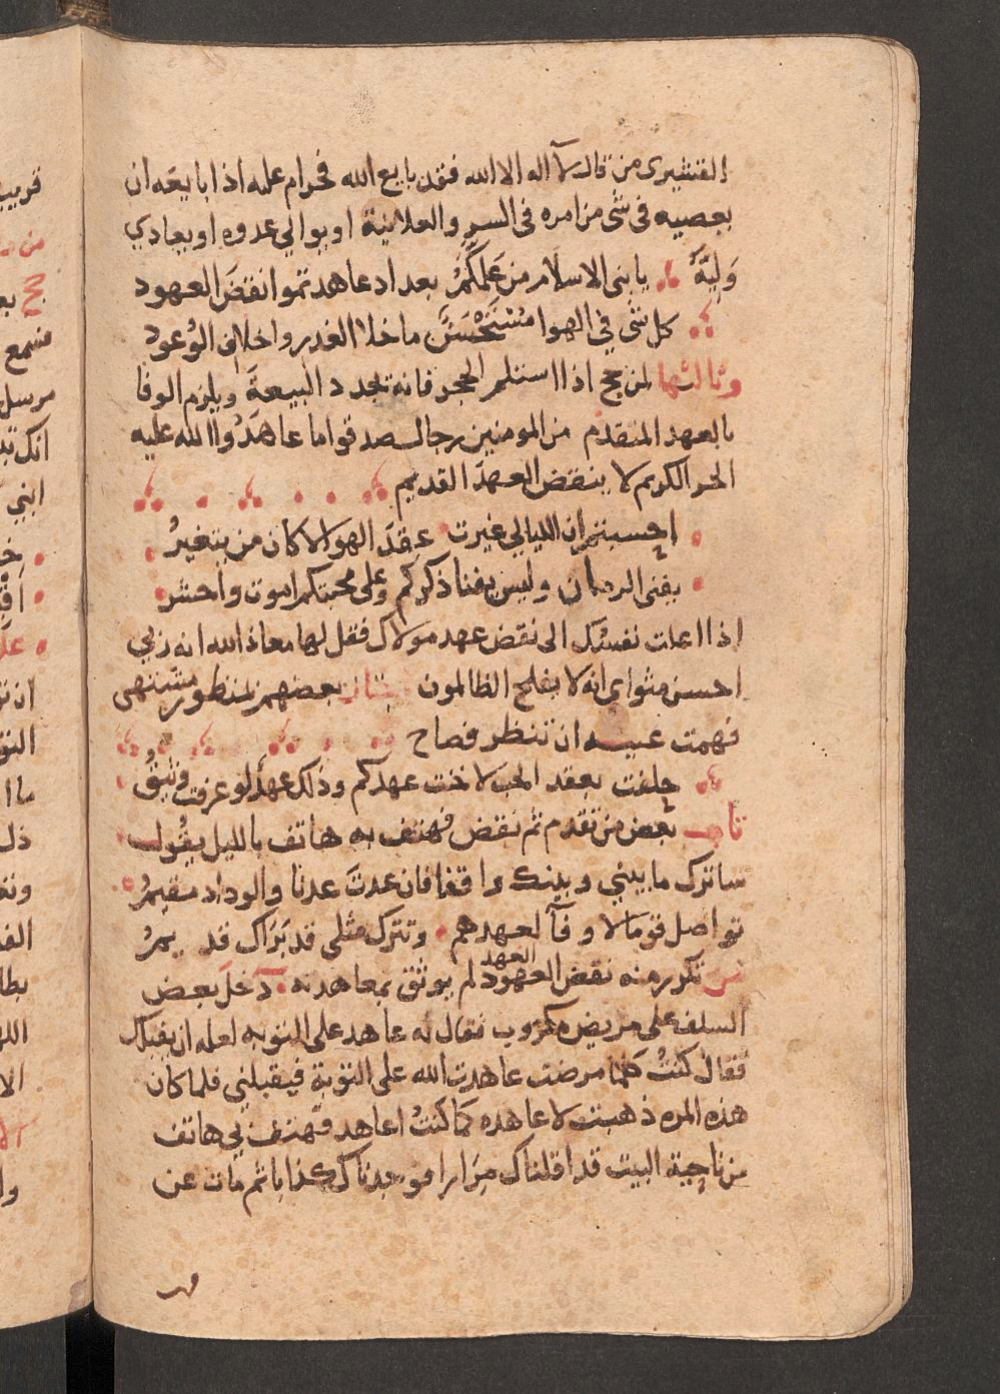 القشيرى من قال لا اله الا الله فقد بايع الله فحرام عليه اذا بايعه ان
يعصيه فى شى من امره فى السر والعلانية او يوالي عدوه او يعادي
وليه يا بنى الاسلام من علمكم بعد اذ عاهدتموا نقض العهود
كل شى في الهوا مستحسن ما خلا الغدر واخلاف الوعود
وثالثها لمن حج اذا استلم الحجر فانه تجدد البيعة ويلزم الوفا
بالعهد المتقدم من المومنين رجال صدقوا ما عاهدوا الله عليه
الحر الكريم لا ينقض العهد القديم
احسبتم ان الليالي غيرت عقد الهوا لا كان من يتغير
يفنى الزمان وليس يفنا ذكركم وعلى محبتكم اموت واحشر
اذا دعتك نفسك الى نقض عهد مولاك فقل لها معاذ الله انه ربي
احسن مثواى انه لا يفلح الظالمون بعضهم لمنظور مشتهى
فهمت عينه ان تنظر فصاح
حلفت بعقد الحب لا خنت عهدكم وذلك عهد لو عرفت وثيق
تاب بعض من تقدم ثم نقض فهتف به هاتف بالليل يقول
ساترك ما بيني وبينك واقفا فان عدت عدنا والوداد مقيم
تواصل قوما لا وفآ لعهدهم وتترك مثلى قد يراك قد يمر
من تكرر منه نقض العهود العهد لم يوثق بمعاهدته دخل بعض
السلف على مريض مكروب فقال له عاهد على التوبه لعله ان يقيلك
فقال كنت كلما مرضت عاهدت الله على التوبة فيقيلني فلما كان
هذه المره ذهبت لاعاهده كما كنت اعاهد فهتف بي هاتف
من ناحية البيت قد اقلناك مرارا فوجدناك كذابا ثم مات عن